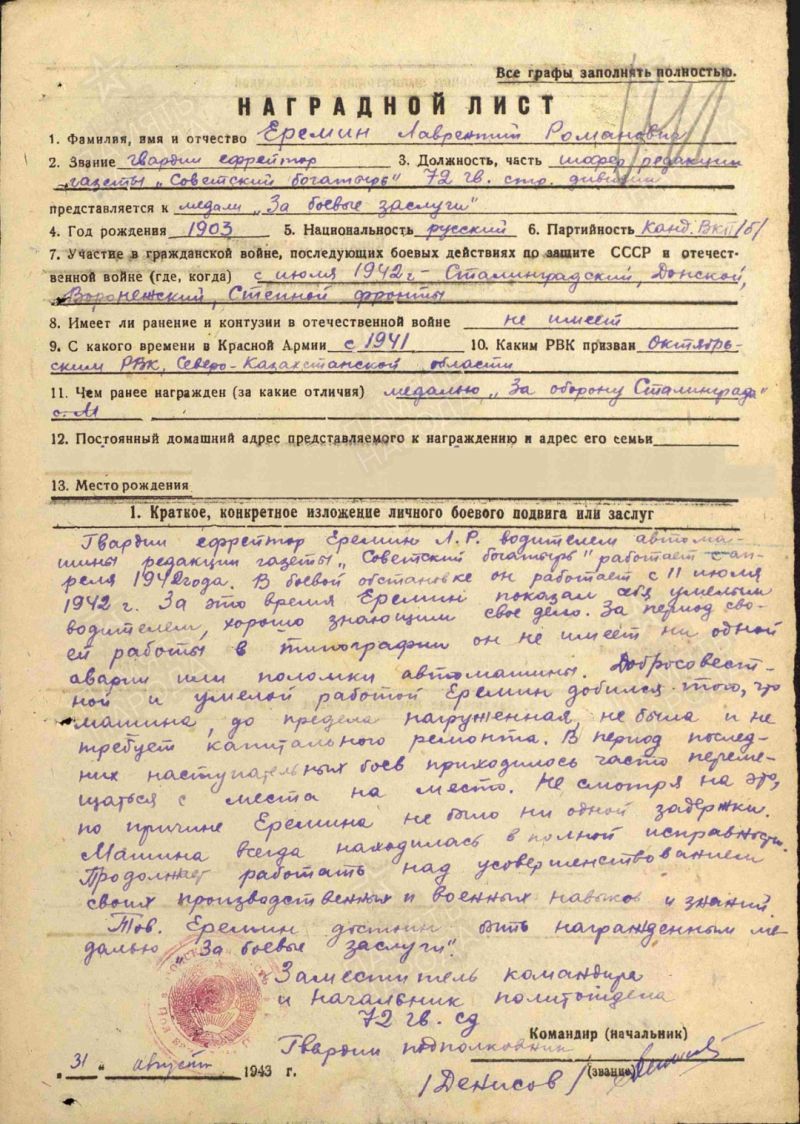 Все графы заполнять полностью.
НАГРАДНОЙ ЛИСТ
1. Фамилия, имя и отчество Еремин Лаврентий Романович
2. Звание гвардии ефрейтор 3. Должность, часть шофер редакции
газеты „Советский богатырь" 72 гв. стр. дивизии
представляется к медали „За боевые заслуги"
4. Год рождения 1903 5. Национальность русский 6. Партийность Канд. ВКП/б/
7. Участие в гражданской войне, последующих боевых действиях по защите СССР и отечест-
венной войне (где, когда) с июля 1942 г. - Сталинградский, Донской,
Воронежский, Степной фронты
8. Имеет ли ранение и контузии в отечественной войне не имеет
9. С какого времени в Красной Армии с 1941 10. Каким РВК призван Октябрь-
ским РВК, Северо-Казахстанской области
11. Чем ранее награжден (за какие отличия) медалью „За оборону Сталинграда"
12. Постоянный домашний адрес представляемого к награждению и адрес его семьи
13. Место рождения
1. Краткое, конкретное изложение личного боевого подвига или заслуг
Гвардии ефрейтор Еремин Л.Р. водителем автома-
шины редакции газеты „Советский богатырь" работает с ап-
реля 1942 года. В боевой обстановке он работает с 11 июля
1942 г. За это время Еремин показал себя умелым
водителем, хорошо знающим свое дело. За период сво-
ей работы в типографии он не имеет ни одной
аварии или поломки автомашины. Добросовест-
ной и умелой работой Еремин добился того, что
машина, до предела нагруженная, не была и не
требует капитального ремонта. В период послед-
них наступательных боев приходилось часто переме-
щаться с места на место. Не смотря на это,
по причине Еремина не было ни одной задержки.
Машина всегда находилась в полной исправности.
Продолжает работать над усовершенствованием
своих производственных и военных навыков и знаний
Тов. Еремин достоин быть награжденным ме-
далью „За боевые заслуги".
Заместитель командира
и начальник политотдела
72 гв. сд
Командир (начальник)
Гвардии подполковник
(звание)
„31" август 1943 г.
/Денисов/